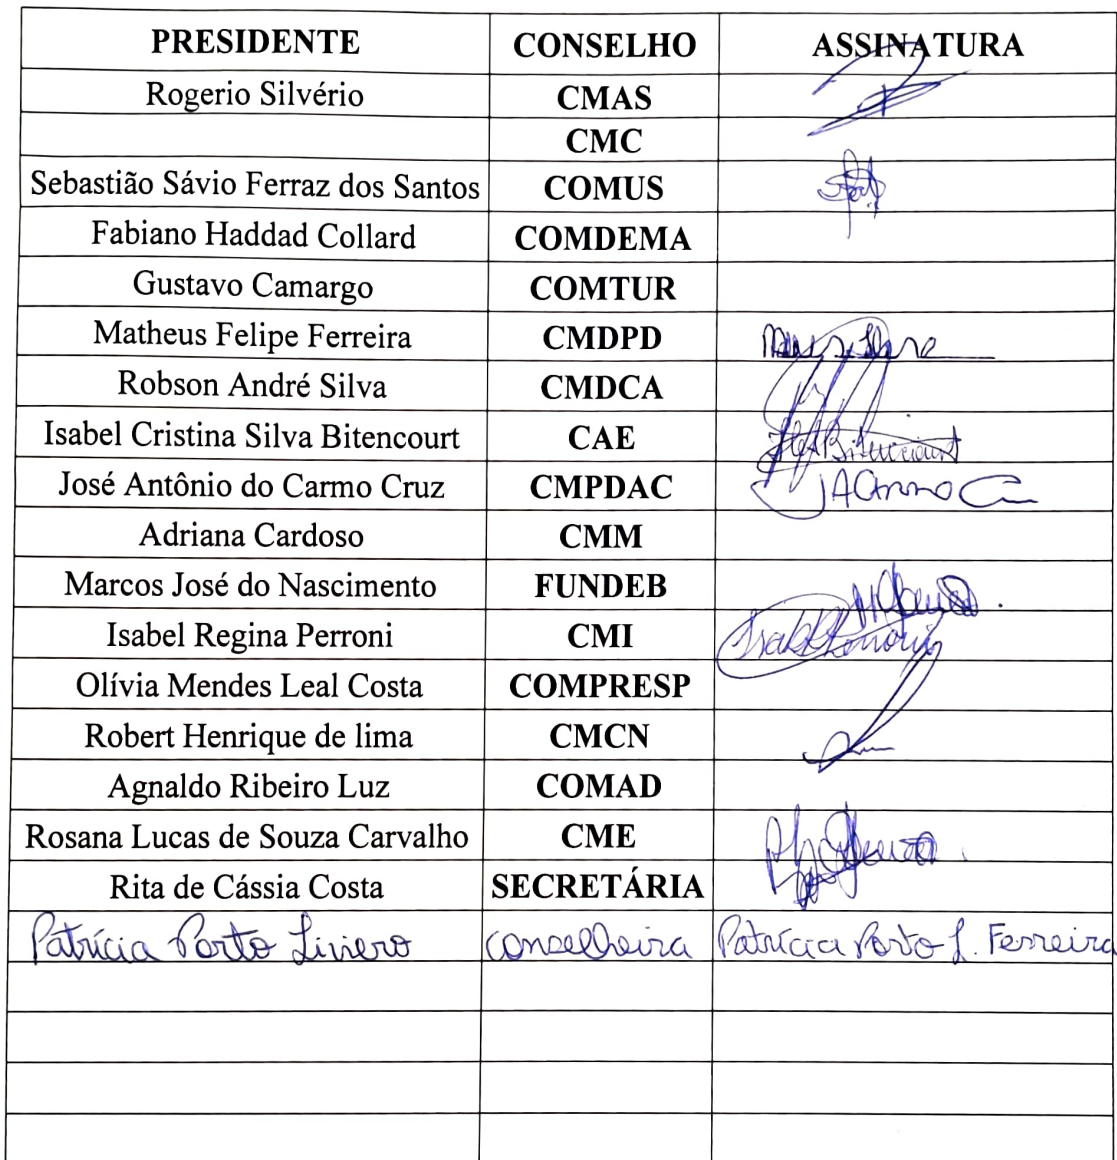 PRESIDENTE CONSELHO ASSINATURA
Rogerio Silvério CMAS
CMC
Sebastião Sávio Ferraz dos Santos COMUS
Fabiano Haddad Collard COMDEMA
Gustavo Camargo COMTUR
Matheus Felipe Ferreira CMDPD
Robson André Silva CMDCA
Isabel Cristina Silva Bitencourt CAE Bitencourt
José Antônio do Carmo Cruz CMPDAC JACarmo
Adriana Cardoso CMM
Marcos José do Nascimento FUNDEB
Isabel Regina Perroni CMI Isabel
Olívia Mendes Leal Costa COMPRESP
Robert Henrique de lima CMCN
Agnaldo Ribeiro Luz COMAD
Rosana Lucas de Souza Carvalho CME
Rita de Cássia Costa SECRETÁRIA
Patrícia Porto Liviero Conselheira Patrícia Porto L. Ferreira